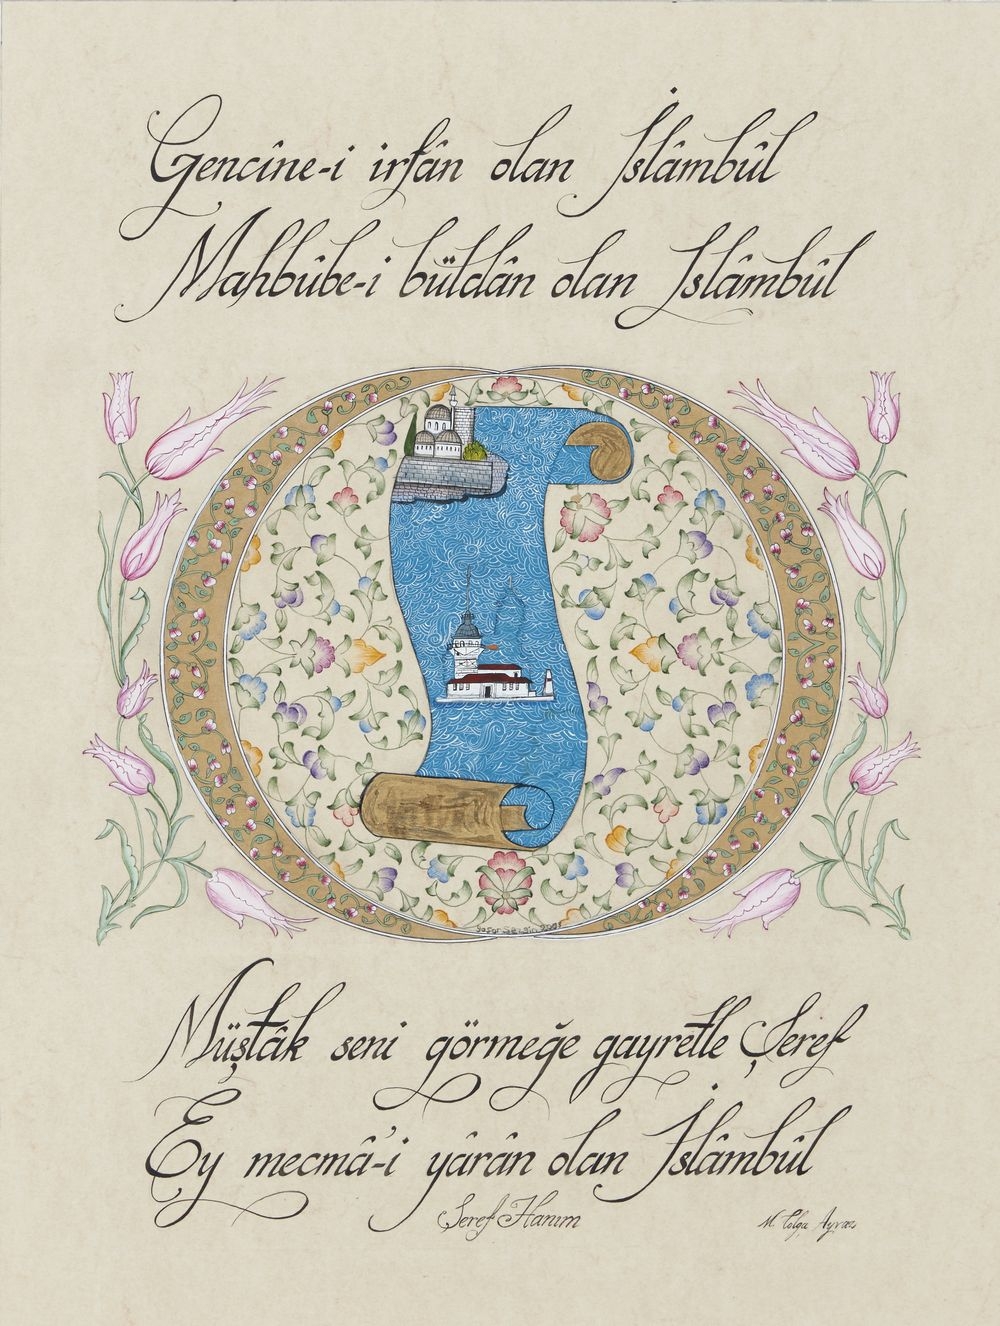 Gencîne-i irfân olan İslâmbûl
Mahbûbe-i büldân olan İslâmbûl
Müştâk seni görmeğe gayretle Şeref
Ey mecmâ'-i yârân olan İslâmbûl
Şeref Hanım
M. Tolga Ayvaz